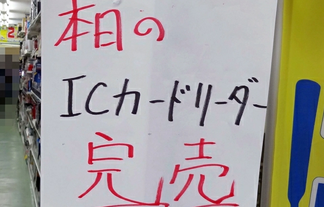 本日の
ICカードリーダー
完売